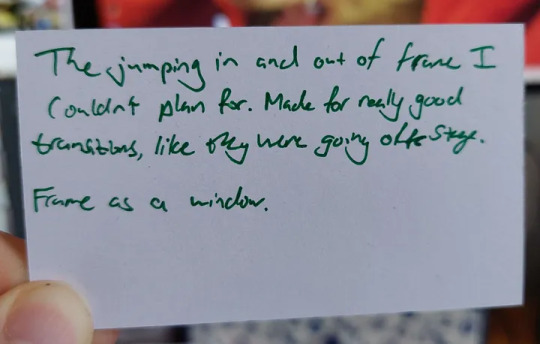 The jumping in and out of frame I
Couldn't plan for. Made for really good
transitions, like they were going off stage.
Frame as a window.